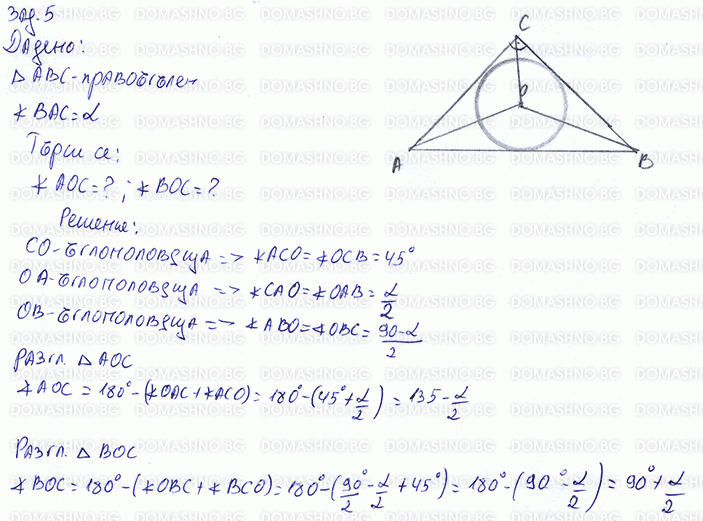 Зад. 5
Дадено:
△ ABC - правоъгълен
∢ BAC = α
Търси се:
∢ AOC = ? ; ∢ BOC = ?
Решение:
CO - ъглополовяща => ∢ACO = ∢OCB = 45°
OA - ъглополовяща => ∢CAO = ∢OAB = α/2
OB - ъглополовяща => ∢ABO = ∢OBC = (90-α)/2
Разгл. △ AOC
∢AOC = 180° - (∢OAC + ∢ACO) = 180° - (45° + α/2) = 135 - α/2
Разгл. △ BOC
∢BOC = 180° - (∢OBC + ∢BCO) = 180° - (90°/2 - α/2 + 45°) = 180° - (90° - α/2) = 90° + α/2
C
O
A
B
DOMASHNO.BG